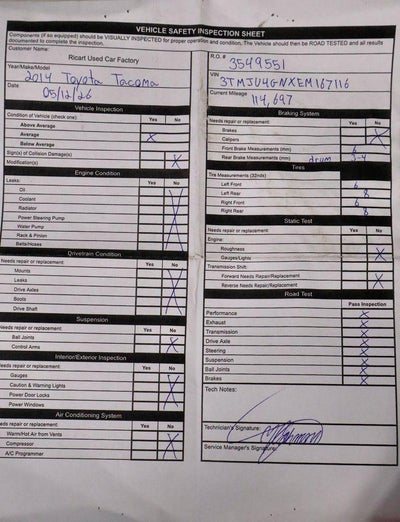 VEHICLE SAFETY INSPECTION SHEET
Components (if so equipped) should be VISUALLY INSPECTED for proper operation and condition. The Vehicle should be ROAD TESTED and all results
documented to complete the inspection.
Customer Name:
Ricart Used Car Factory
Year/Make/Model
2014 Toyota Tacoma
Date
05/12/26
Vehicle Inspection
Condition of Vehicle (check one): Yes No
Above Average
Average X
Below Average
Sign(s) of Collision Damage(s)
Modification(s) X
Engine Condition
Leaks: Yes No
Oil
Coolant
Radiator
Power Steering Pump
Water Pump
Rack & Pinion
Belts/Hoses
Drivetrain Condition
Needs repair or replacement: Yes No
Mounts
Leaks
Drive Axles
Boots
Drive Shaft
Suspension
Needs repair or replacement: Yes No
Ball Joints
Control Arms
Interior/Exterior Inspection
Needs repair or replacement: Yes No
Gauges
Caution & Warning Lights
Power Door Locks
Power Windows
Air Conditioning System
Needs repair or replacement: Yes No
Warm/Hot Air from Vents
Compressor
A/C Programmer
R.O. #
3549551
VIN
3TMJU4GNXEM167116
Current Mileage
114,697
Braking System
Needs repair or replacement: Yes No
Brakes
Calipers
Front Brake Measurements (mm) 6
Rear Brake Measurements (mm) drum 3-4
Tires
Tire Measurements (32nds)
Left Front 6
Left Rear 8
Right Front 6
Right Rear 8
Static Test
Engine: Yes No
Roughness
Gauges/Lights
Transmission Shift:
Forward Needs Repair/Replacement
Reverse Needs Repair/Replacement
Road Test
Pass Inspection
Performance X
Exhaust X
Transmission X
Drive Axle X
Steering X
Suspension X
Ball Joints X
Brakes X
Tech Notes:
Technician's Signature:
Service Manager's Signature: